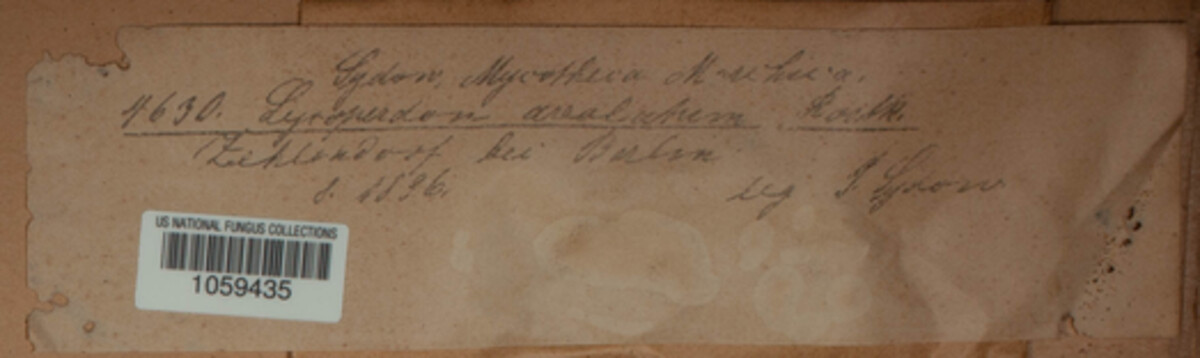 Sydow, Mycotheca Marchica.
4630. Lycoperdon Rostk.
Zehlendorf bei Berlin
8. 1896. leg P. Sydow
US NATIONAL FUNGUS COLLECTIONS
1059435